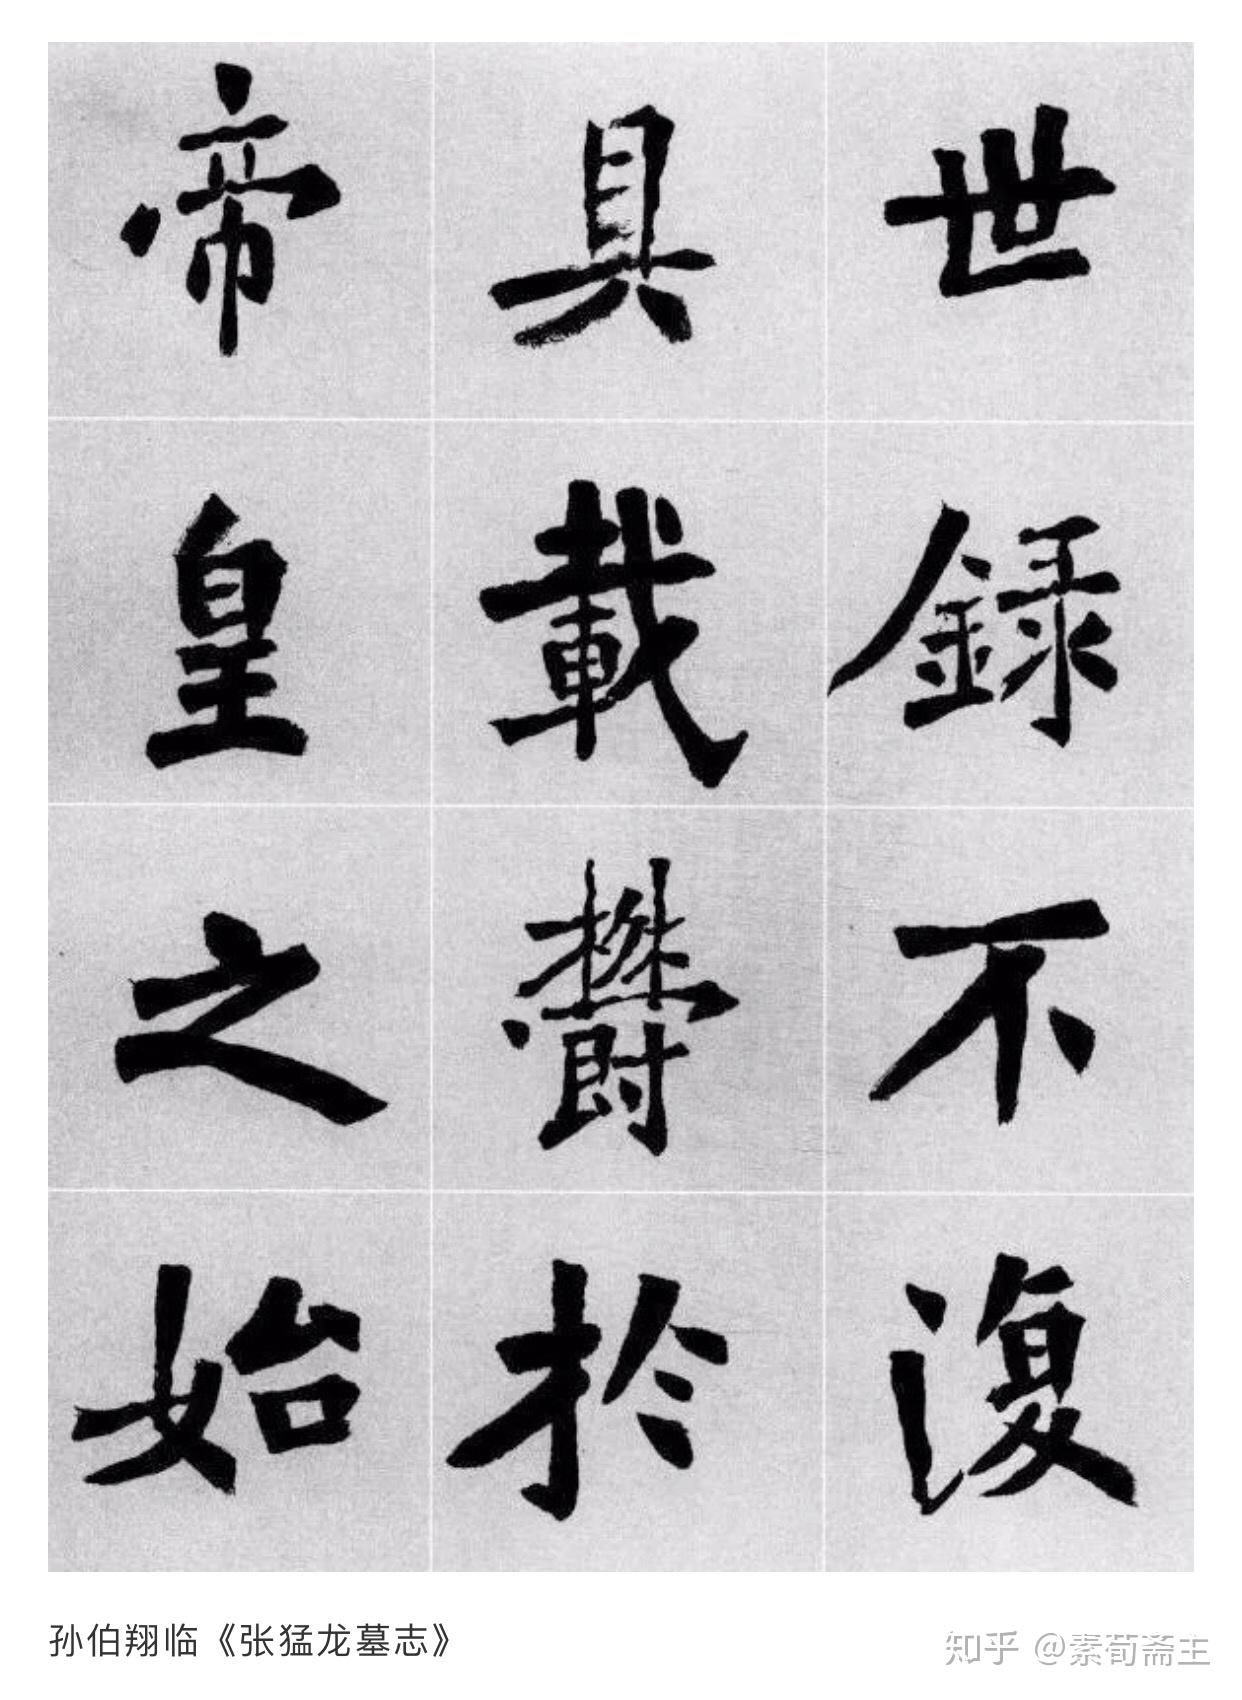 世録不復
具載欝於
帝皇之始
孙伯翔临《张猛龙墓志》
知乎 @素荀斋主